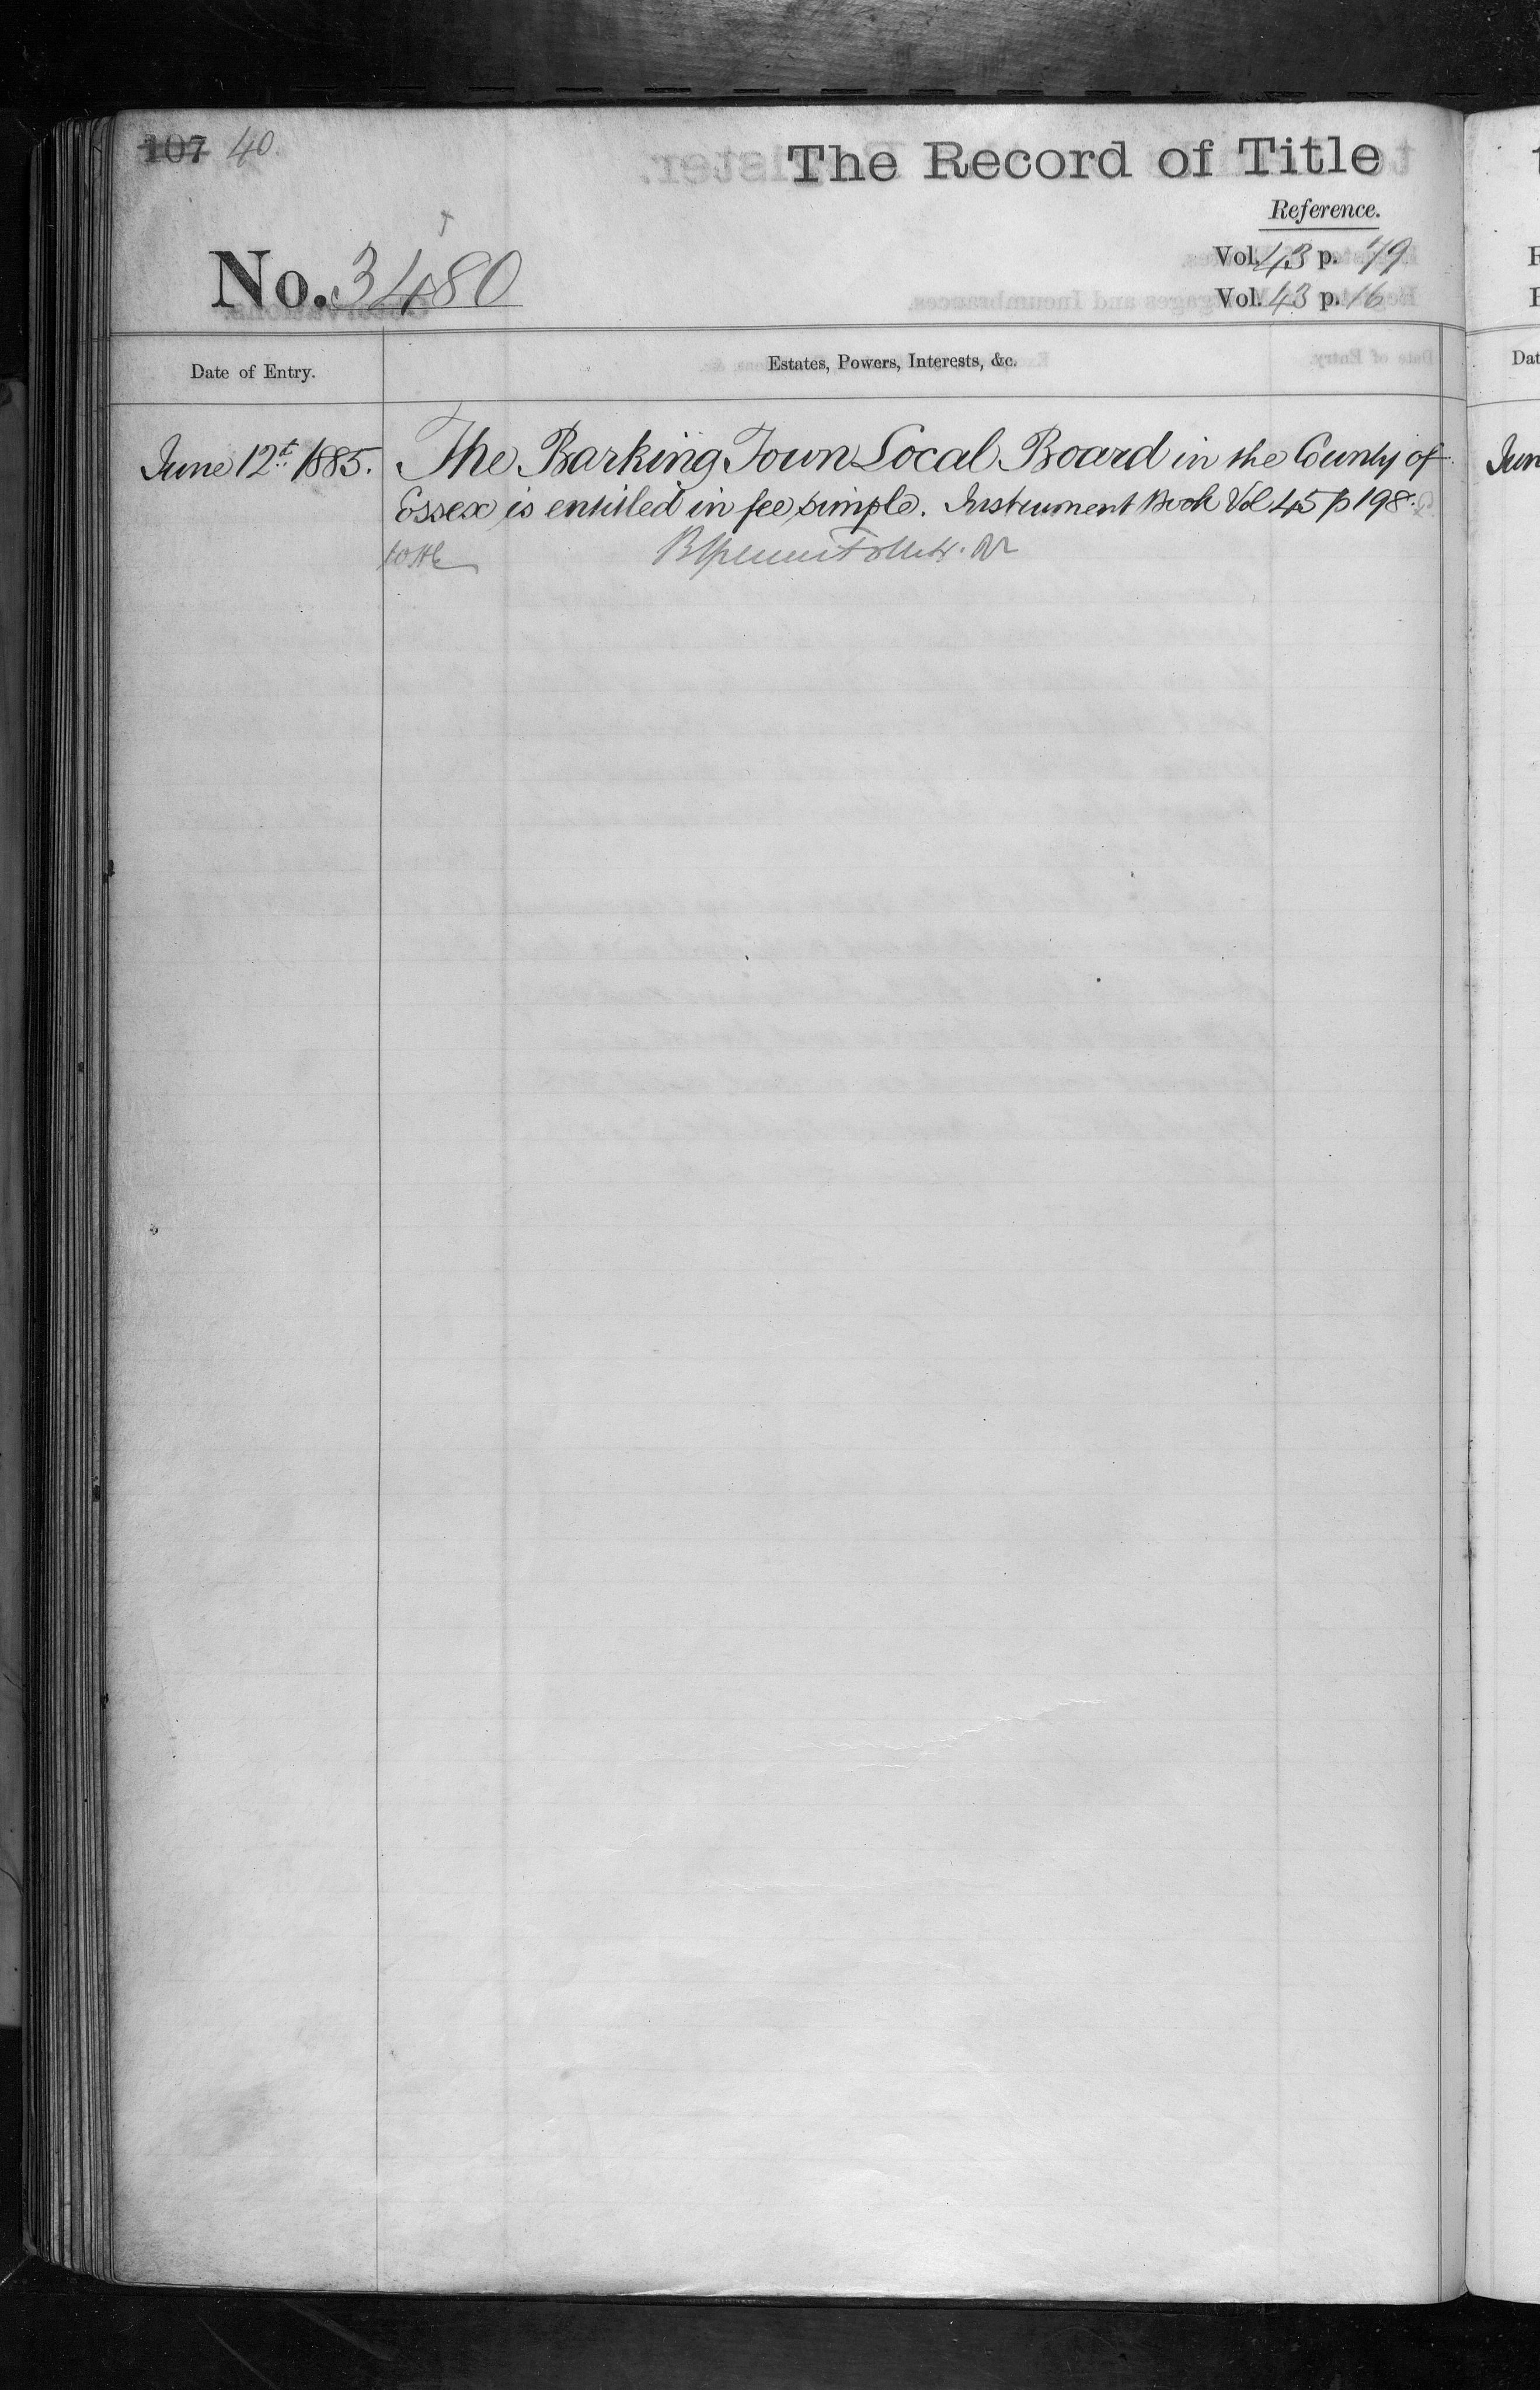 107 40.
The Record of Title
Reference.
No. 3480
Vol. 43 p. 79
Vol. 43 p. 16
Date of Entry.
Estates, Powers, Interests, &c.
June 12th 1885. The Barking Town Local Board in the County of
Essex is entitled in fee simple. Instrument Book Vol 45 p 198.